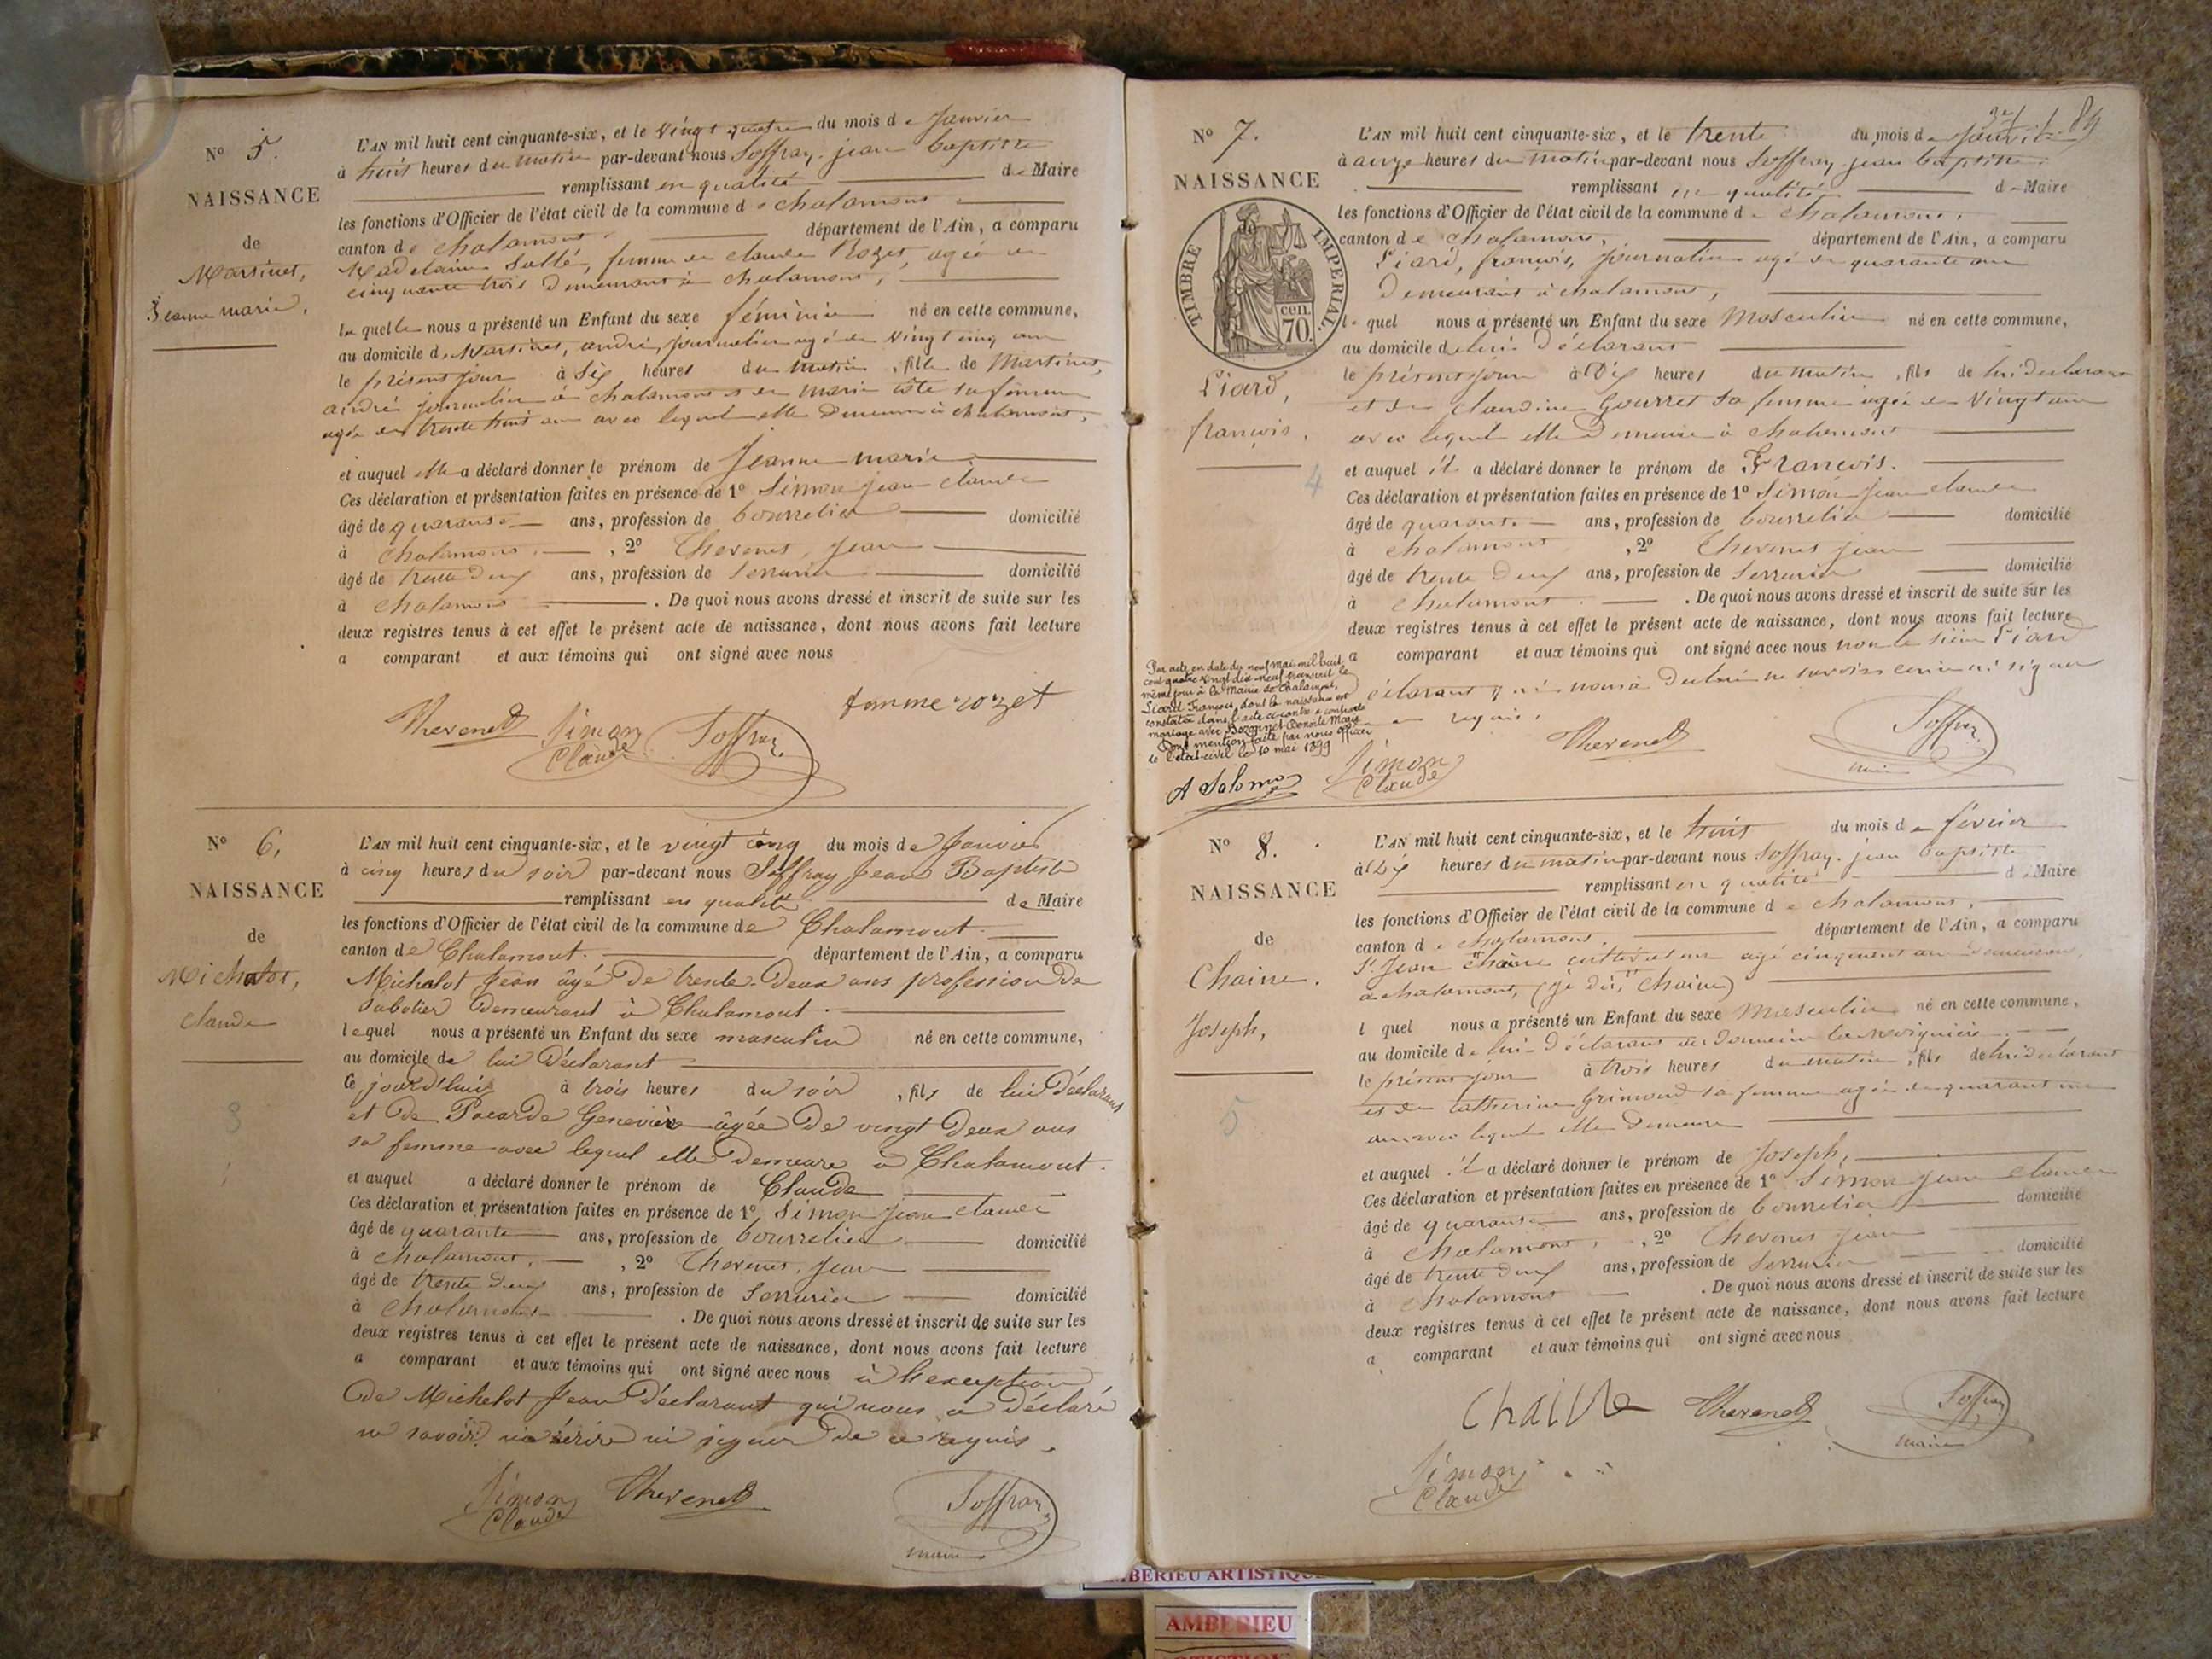 N° 5.
NAISSANCE
de
Martinet,
Jeanne marie,
L'AN mil huit cent cinquante-six, et le vingt quatre du mois de Janvier
à huit heures du matin par-devant nous Soffray jean baptiste
remplissant en qualité de Maire
les fonctions d'Officier de l'état civil de la commune de chalamont
canton de chalamont département de l'Ain, a comparu
Madelaine Sallé, femme de claude Rozet, agée de
cinquante trois demeurant à chalamont,
la quelle nous a présenté un Enfant du sexe féminin né en cette commune,
au domicile de Martinet, andré, journalier agé de vingt cinq ans
le présent jour à six heures du matin, fille de Martinet,
andré journalier à chalamont et de marie sa femme
agée de trente huit ans avec lequel elle demeure à chalamont,
et auquel elle a déclaré donner le prénom de Jeanne marie.
Ces déclaration et présentation faites en présence de 1° Simon jean claude
âgé de quarante ans, profession de bourrelier domicilié
à chalamont, 2° Thevenet, jean
âgé de trente deux ans, profession de Serrurier domicilié
à chalamont. De quoi nous avons dressé et inscrit de suite sur les
deux registres tenus à cet effet le présent acte de naissance, dont nous avons fait lecture
a comparant et aux témoins qui ont signé avec nous
famme rozet
Thevenet Simon Claude Soffray
N° 6,
NAISSANCE
de
Michalot,
claude
3
L'AN mil huit cent cinquante-six, et le vingt cinq du mois de Janvier
à cinq heures du soir par-devant nous Soffray Jean Baptiste
remplissant en qualité de Maire
les fonctions d'Officier de l'état civil de la commune de Chalamont.
canton de Chalamont. département de l'Ain, a comparu
Michalot Jean âgé de trente-deux ans profession de
sabotier demeurant à Chalamont.
lequel nous a présenté un Enfant du sexe masculin né en cette commune,
au domicile de lui Déclarant
ce jourd'hui à trois heures du soir, fils de lui Déclarant
et de Pacarde Geneviève âgée de vingt deux ans
sa femme avec lequel elle demeure à Chalamont.
et auquel a déclaré donner le prénom de Claude
Ces déclaration et présentation faites en présence de 1° Simon jean claude
âgé de quarante ans, profession de bourrelier domicilié
à chalamont, 2° Thevenet, jean
âgé de trente deux ans, profession de Serrurier domicilié
à chalamont. De quoi nous avons dressé et inscrit de suite sur les
deux registres tenus à cet effet le présent acte de naissance, dont nous avons fait lecture
a comparant et aux témoins qui ont signé avec nous à l'exception
de Michelot Jean Déclarant qui nous a déclaré
ne savoir ni écrire ni signer de ce requis.
Simon Claude Thevenet Soffray
maire
84
N° 7.
NAISSANCE
TIMBRE IMPERIAL.
70. CEN.
Liard,
francois,
4
L'AN mil huit cent cinquante-six, et le trente du mois de Janvier
à onze heures du matin par-devant nous Soffray jean baptiste
remplissant en qualité de Maire
les fonctions d'Officier de l'état civil de la commune de chalamont,
canton de chalamont, département de l'Ain, a comparu
Liard, françois, journalier agé de quarante ans
demeurant à chalamont,
le quel nous a présenté un Enfant du sexe Masculin né en cette commune,
au domicile de lui déclarant
le présent jour à dix heures du matin, fils de lui déclarant
et de claudine Gourret sa femme agée de vingt ans
avec lequel elle demeure à chalamont
et auquel il a déclaré donner le prénom de Francois.
Ces déclaration et présentation faites en présence de 1° Simon jean claude
âgé de quarante ans, profession de bourrelier domicilié
à chalamont, 2° Thevenet jean
âgé de trente deux ans, profession de Serrurier domicilié
à chalamont. De quoi nous avons dressé et inscrit de suite sur les
deux registres tenus à cet effet le présent acte de naissance, dont nous avons fait lecture
a comparant et aux témoins qui ont signé avec nous non le sieur Liard
déclarant qui nous a déclaré ne savoir écrire ni signer
de requis.
Par acte en date du neuf mai mil huit
cent quatre vingt dix-neuf transcrit le
même jour à la Mairie de Chalamont,
Liard François dont la naissance est
constatée dans l'acte ci-contre a contracté
mariage avec Bozonnet Benoîte Marie
Dont mention faite par nous officier
de l'état-civil le 10 mai 1899
A Salomon
Simon Claude Thevenet Soffray
maire
N° 8.
NAISSANCE
de
Chaine.
Joseph,
5
L'AN mil huit cent cinquante-six, et le huit du mois de février
à dix heures du matin par-devant nous Soffray jean baptiste
remplissant en qualité de Maire
les fonctions d'Officier de l'état civil de la commune de chalamont,
canton de chalamont, département de l'Ain, a comparu
St Jean chaine cultivateur agé cinquante ans demeurant
à chalamont, (je dis, chaine)
l quel nous a présenté un Enfant du sexe Masculin né en cette commune,
au domicile de lui déclarant au domaine
le présent jour à trois heures du matin, fils de lui déclarant
et de catherine Grimoud sa femme agée de quarante un
ans avec lequel elle demeure
et auquel il a déclaré donner le prénom de Joseph,
Ces déclaration et présentation faites en présence de 1° Simon jean claude
âgé de quarante ans, profession de bourrelier domicilié
à chalamont, 2° Thevenet jean
âgé de trente deux ans, profession de Serrurier domicilié
à chalamont. De quoi nous avons dressé et inscrit de suite sur les
deux registres tenus à cet effet le présent acte de naissance, dont nous avons fait lecture
a comparant et aux témoins qui ont signé avec nous
Chaine Thevenet Soffray
maire
Simon Claude
AMBERIEU ARTISTIQUE
AMBERIEU
ARTISTIQUE